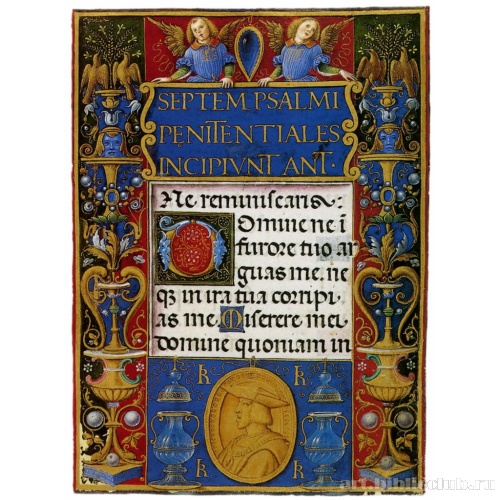 SEPTEM PSALMI
PENITENTIALES
INCIPIVNT ANT·
Ne reminiscaris:
Domine ne i
furore tuo ar
guas me. ne
q3 in ira tua corripi
as me. Miserere mei
domine quoniam in
art.biblioclub.ru